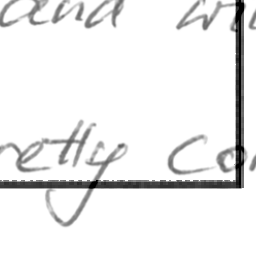 and wi
retty co